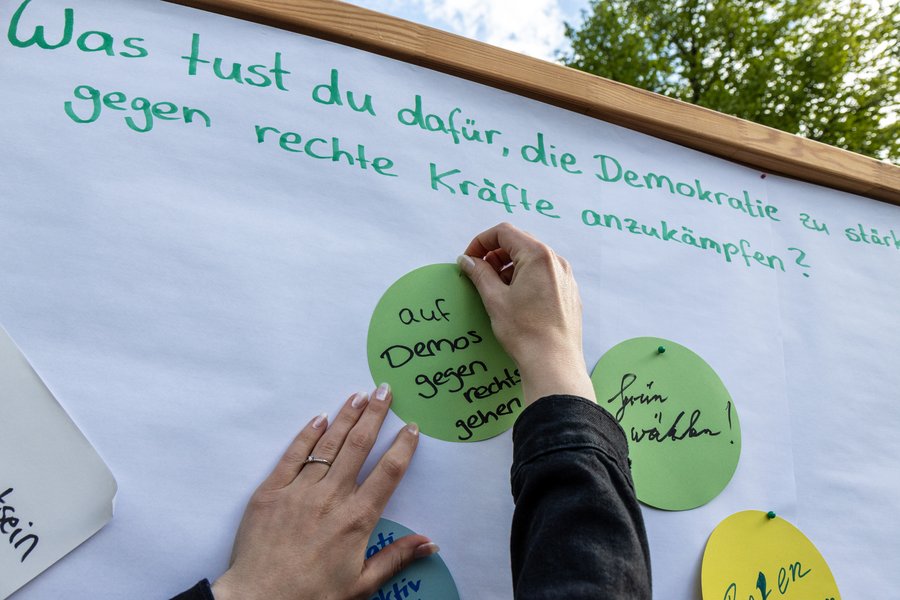 Was tust du dafür, die Demokratie zu stärk
gegen rechte Kräfte anzukämpfen?
auf
Demos
gegen
rechts
gehen
Grün
wählen!